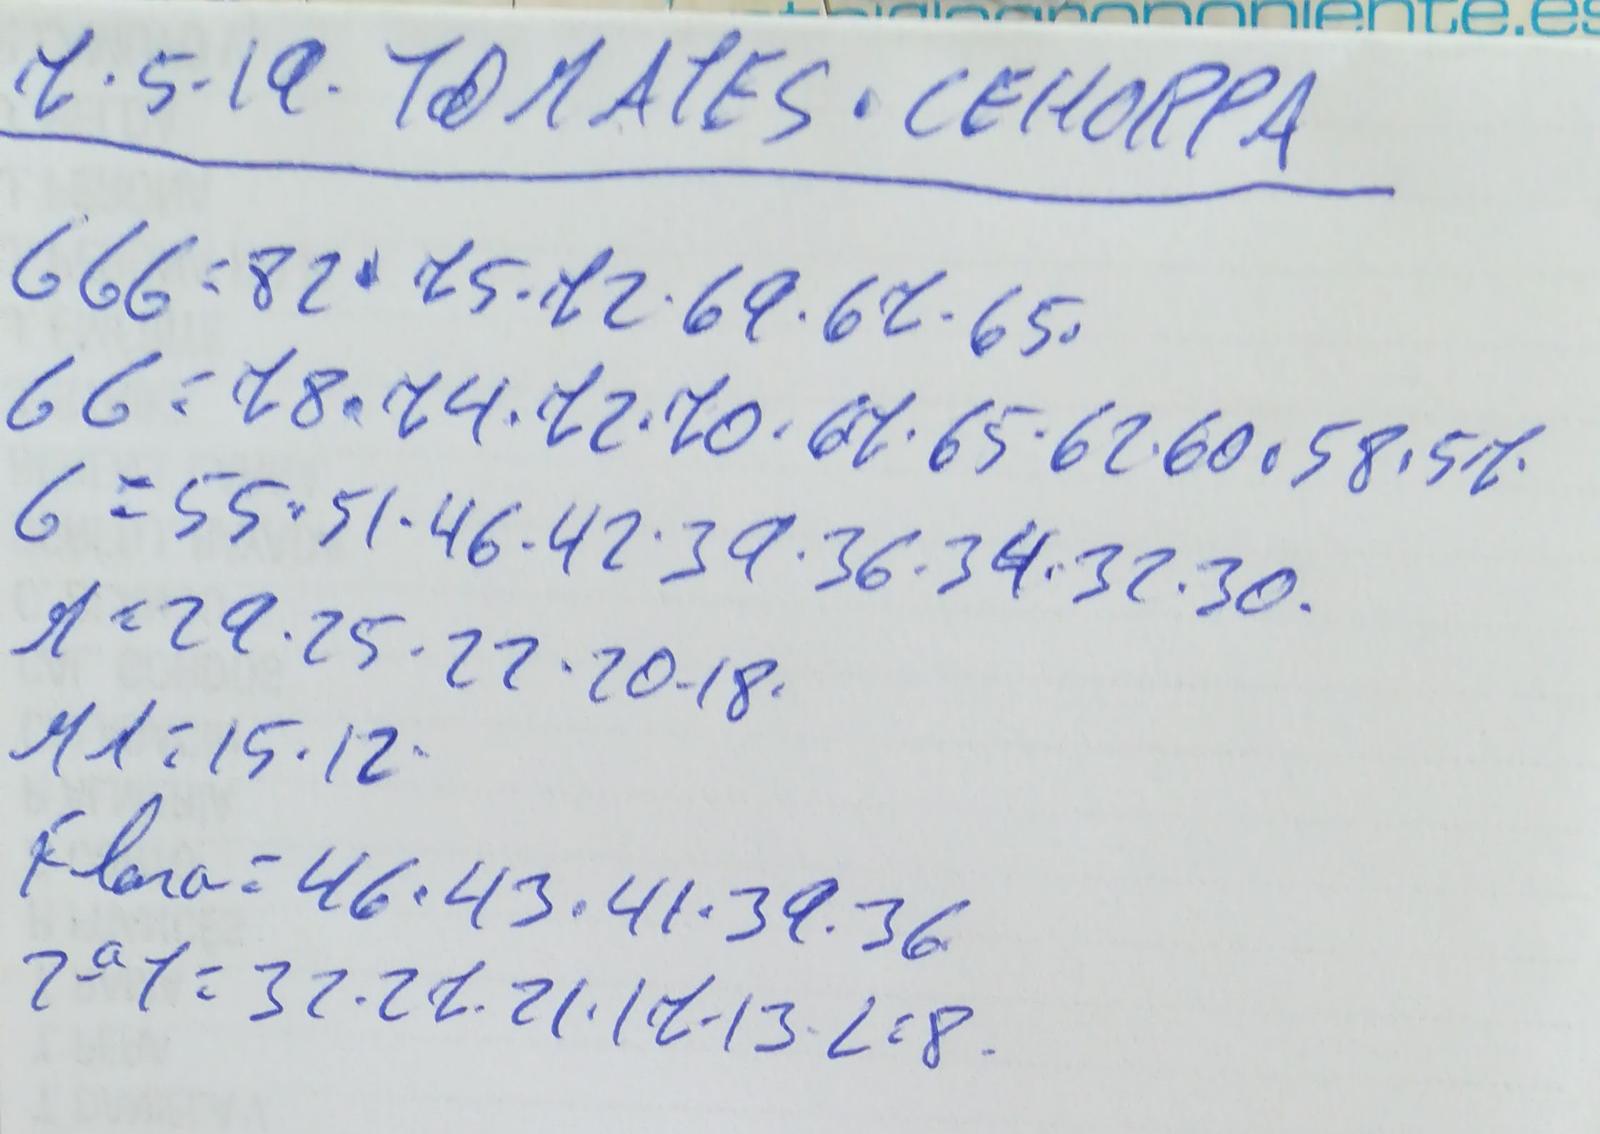 7.5.19. TOMATES. CEHORPA
GGG=82. 75.72.69.67.65.
GG=78.74.72.70.67.65.62.60.58.57.
G=55.51.46.42.39.36.34.32.30.
M=29.25.22.20-18.
MM=15.12.
Flora=46.43.41.39.36
2ªT=32.27.21.17-13-L=8.